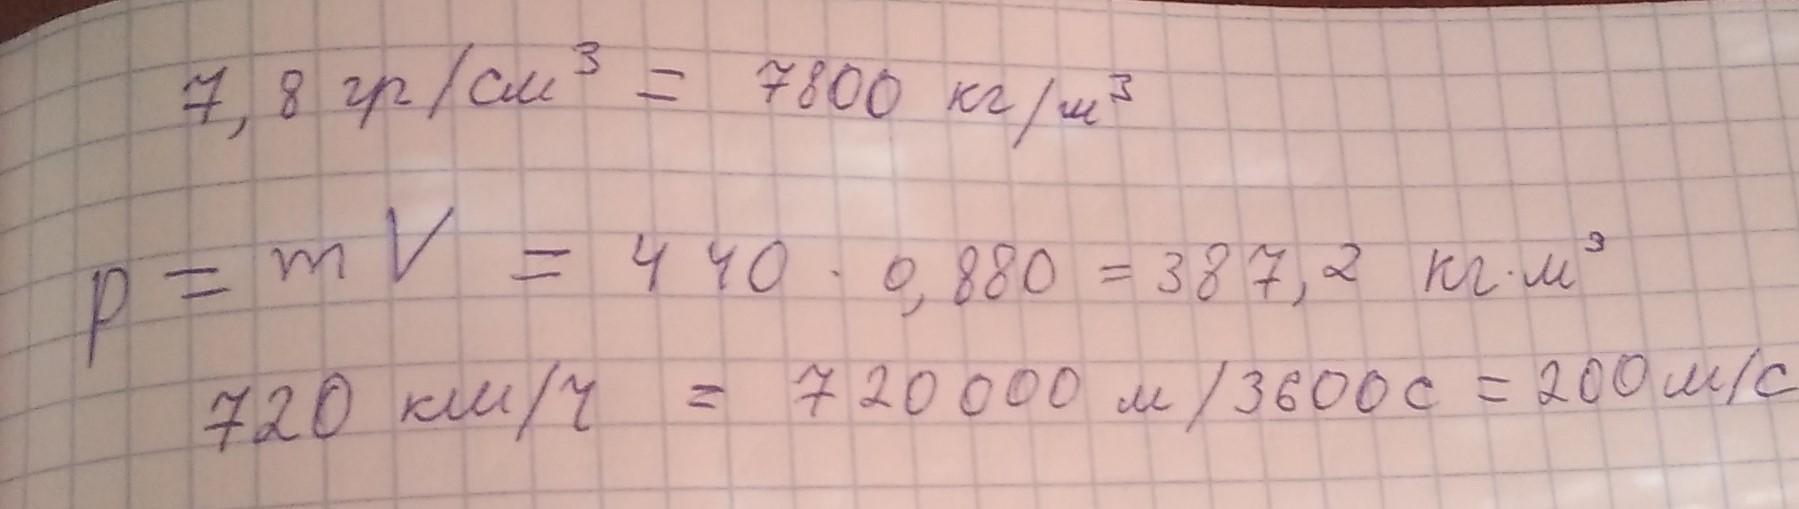 7,8 гр/см³ = 7800 кг/м³
p = mV = 440 · 0,880 = 387,2 кг·м³
720 км/ч = 720000 м/3600с = 200м/с